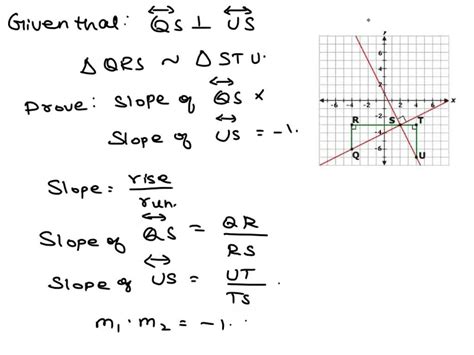 Given that: QS ⊥ US
Δ QRS ~ Δ STU.
Prove: Slope of QS ×
Slope of US = -1.
Slope = rise/run.
Slope of QS = QR/RS
Slope of US = UT/TS.
m₁ · m₂ = -1.
y
6
4
2
-6 -4 -2 2 4 6 x
-2
R S T
-4
-6
Q U